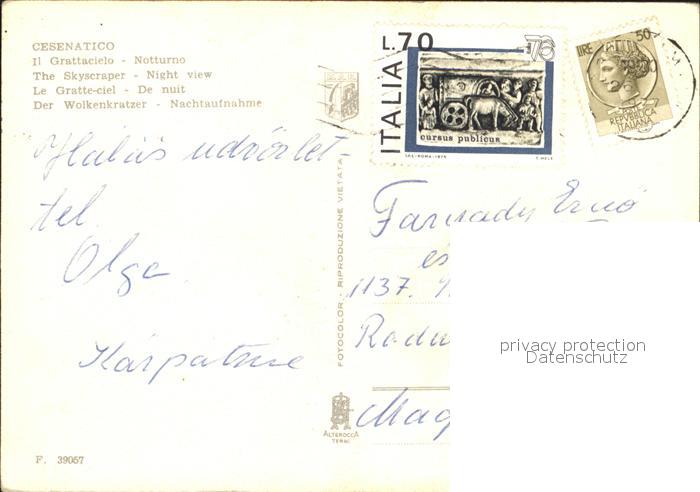 CESENATICO
Il Grattacielo - Notturno
The Skyscraper - Night view
Le Gratte-ciel - De nuit
Der Wolkenkratzer - Nachtaufnahme
Hálás üdvözlet-
tel
Olga
Kárpátiné
F. 39057
FOTOCOLOR - RIPRODUZIONE VIETATA
ALTEROCCA
TERNI
L.70
ITALIA
cursus publicus
I.P.S.-ROMA-1976
LIRE
50
REPUBBLICA
ITALIANA
Farkady Ernő
és
1137.
Radn
Mag
privacy protection
Datenschutz